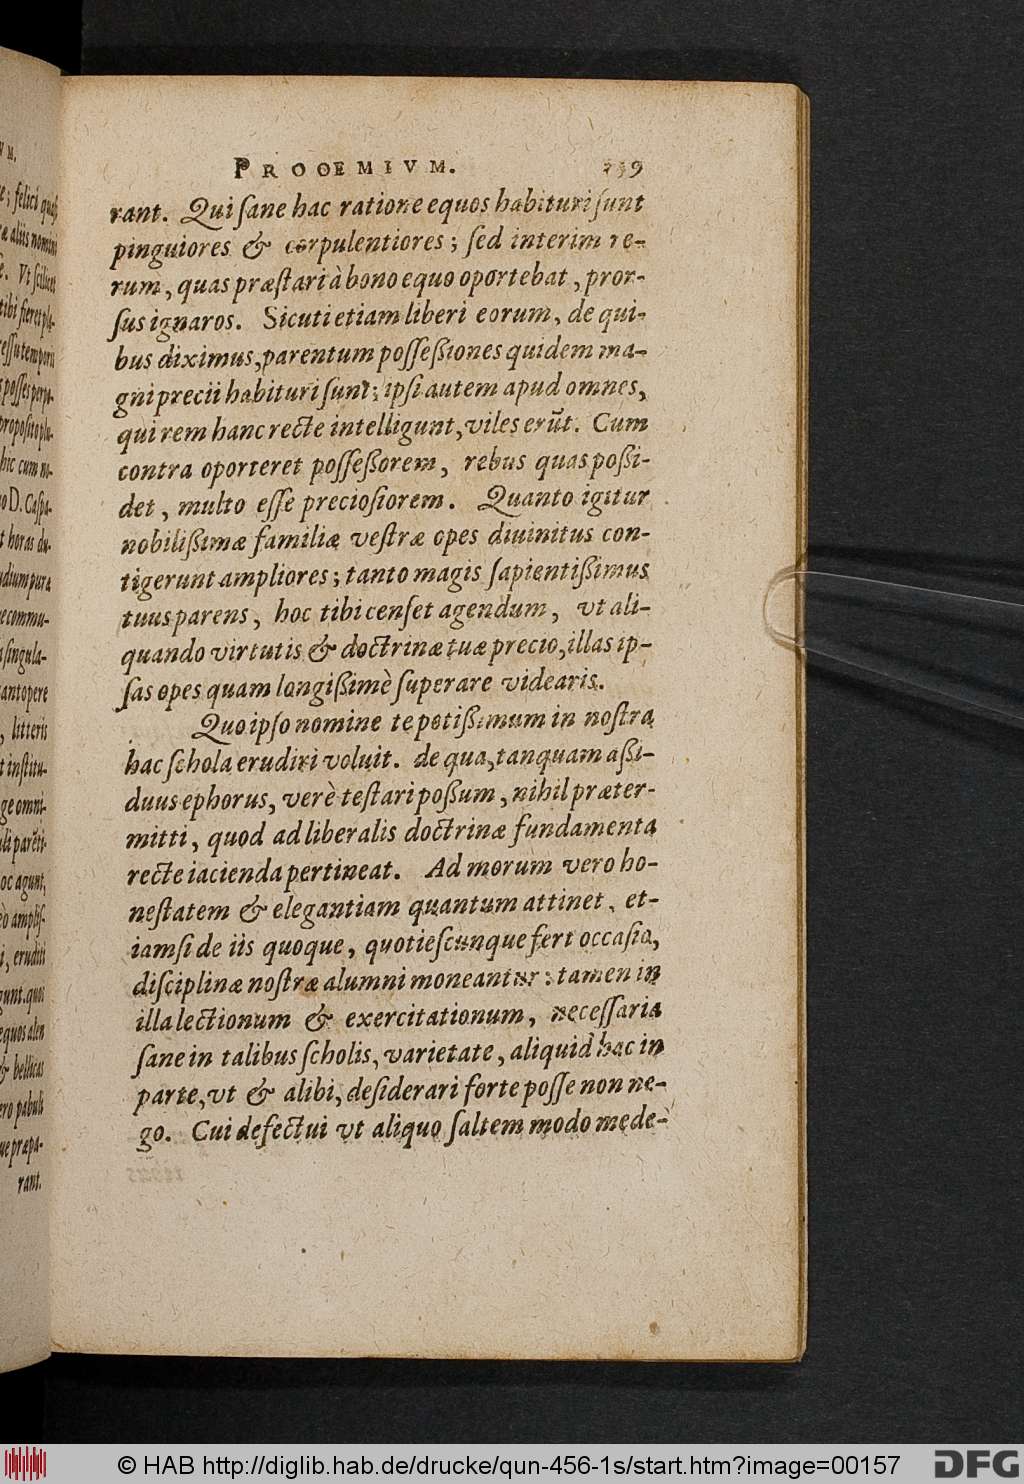 PROOEMIVM. 139
rant. Qui ſane hac ratione equos habituri ſunt
pinguiores & corpulentiores; ſed interim re-
rum, quas præſtari à bono equo oportebat, pror-
ſus ignaros. Sicuti etiam liberi eorum, de qui-
bus diximus, parentum poſſeßiones quidem ma-
gni precii habituri ſunt; ipſi autem apud omnes,
qui rem hanc recte intelligunt, viles erũt. Cum
contra oporteret poſſeßorem, rebus quas poßi-
det, multo eſſe precioſiorem. Quanto igitur
nobilißimæ familiæ veſtræ opes diuinitus con-
tigerunt ampliores; tanto magis ſapientißimus
tuus parens, hoc tibi cenſet agendum, vt ali-
quando virtutis & doctrinæ tuæ precio, illas ip-
ſas opes quam longißimè ſuperare videaris.
Quo ipſo nomine te potißimum in noſtra
hac ſchola erudiri voluit. de qua, tanquam aßi-
duus ephorus, verè teſtari poßum, nihil præter-
mitti, quod ad liberalis doctrinæ fundamenta
recte iacienda pertineat. Ad morum vero ho-
neſtatem & elegantiam quantum attinet, et-
iamſi de iis quoque, quotieſcunque fert occaſio,
diſciplinæ noſtræ alumni moneantur: tamen in
illa lectionum & exercitationum, neceſſaria
ſane in talibus ſcholis, varietate, aliquid hac in
parte, vt & alibi, deſiderari forte poſſe non ne-
go. Cui defectui vt aliquo ſaltem modo mede-
VM.
; felici
aliis nomini
Vt ſcilicet
tibi fieret
poſſes
propoſito
hic cum
D. Caſpa-
horas du-
ſingula-
litteris
inſtitu-
omni-
agunt,
ampliſ-
eruditi
quos
equos
& bellicas
pabuli
præpa-
rant.
© HAB http://diglib.hab.de/drucke/qun-456-1s/start.htm?image=00157
DFG